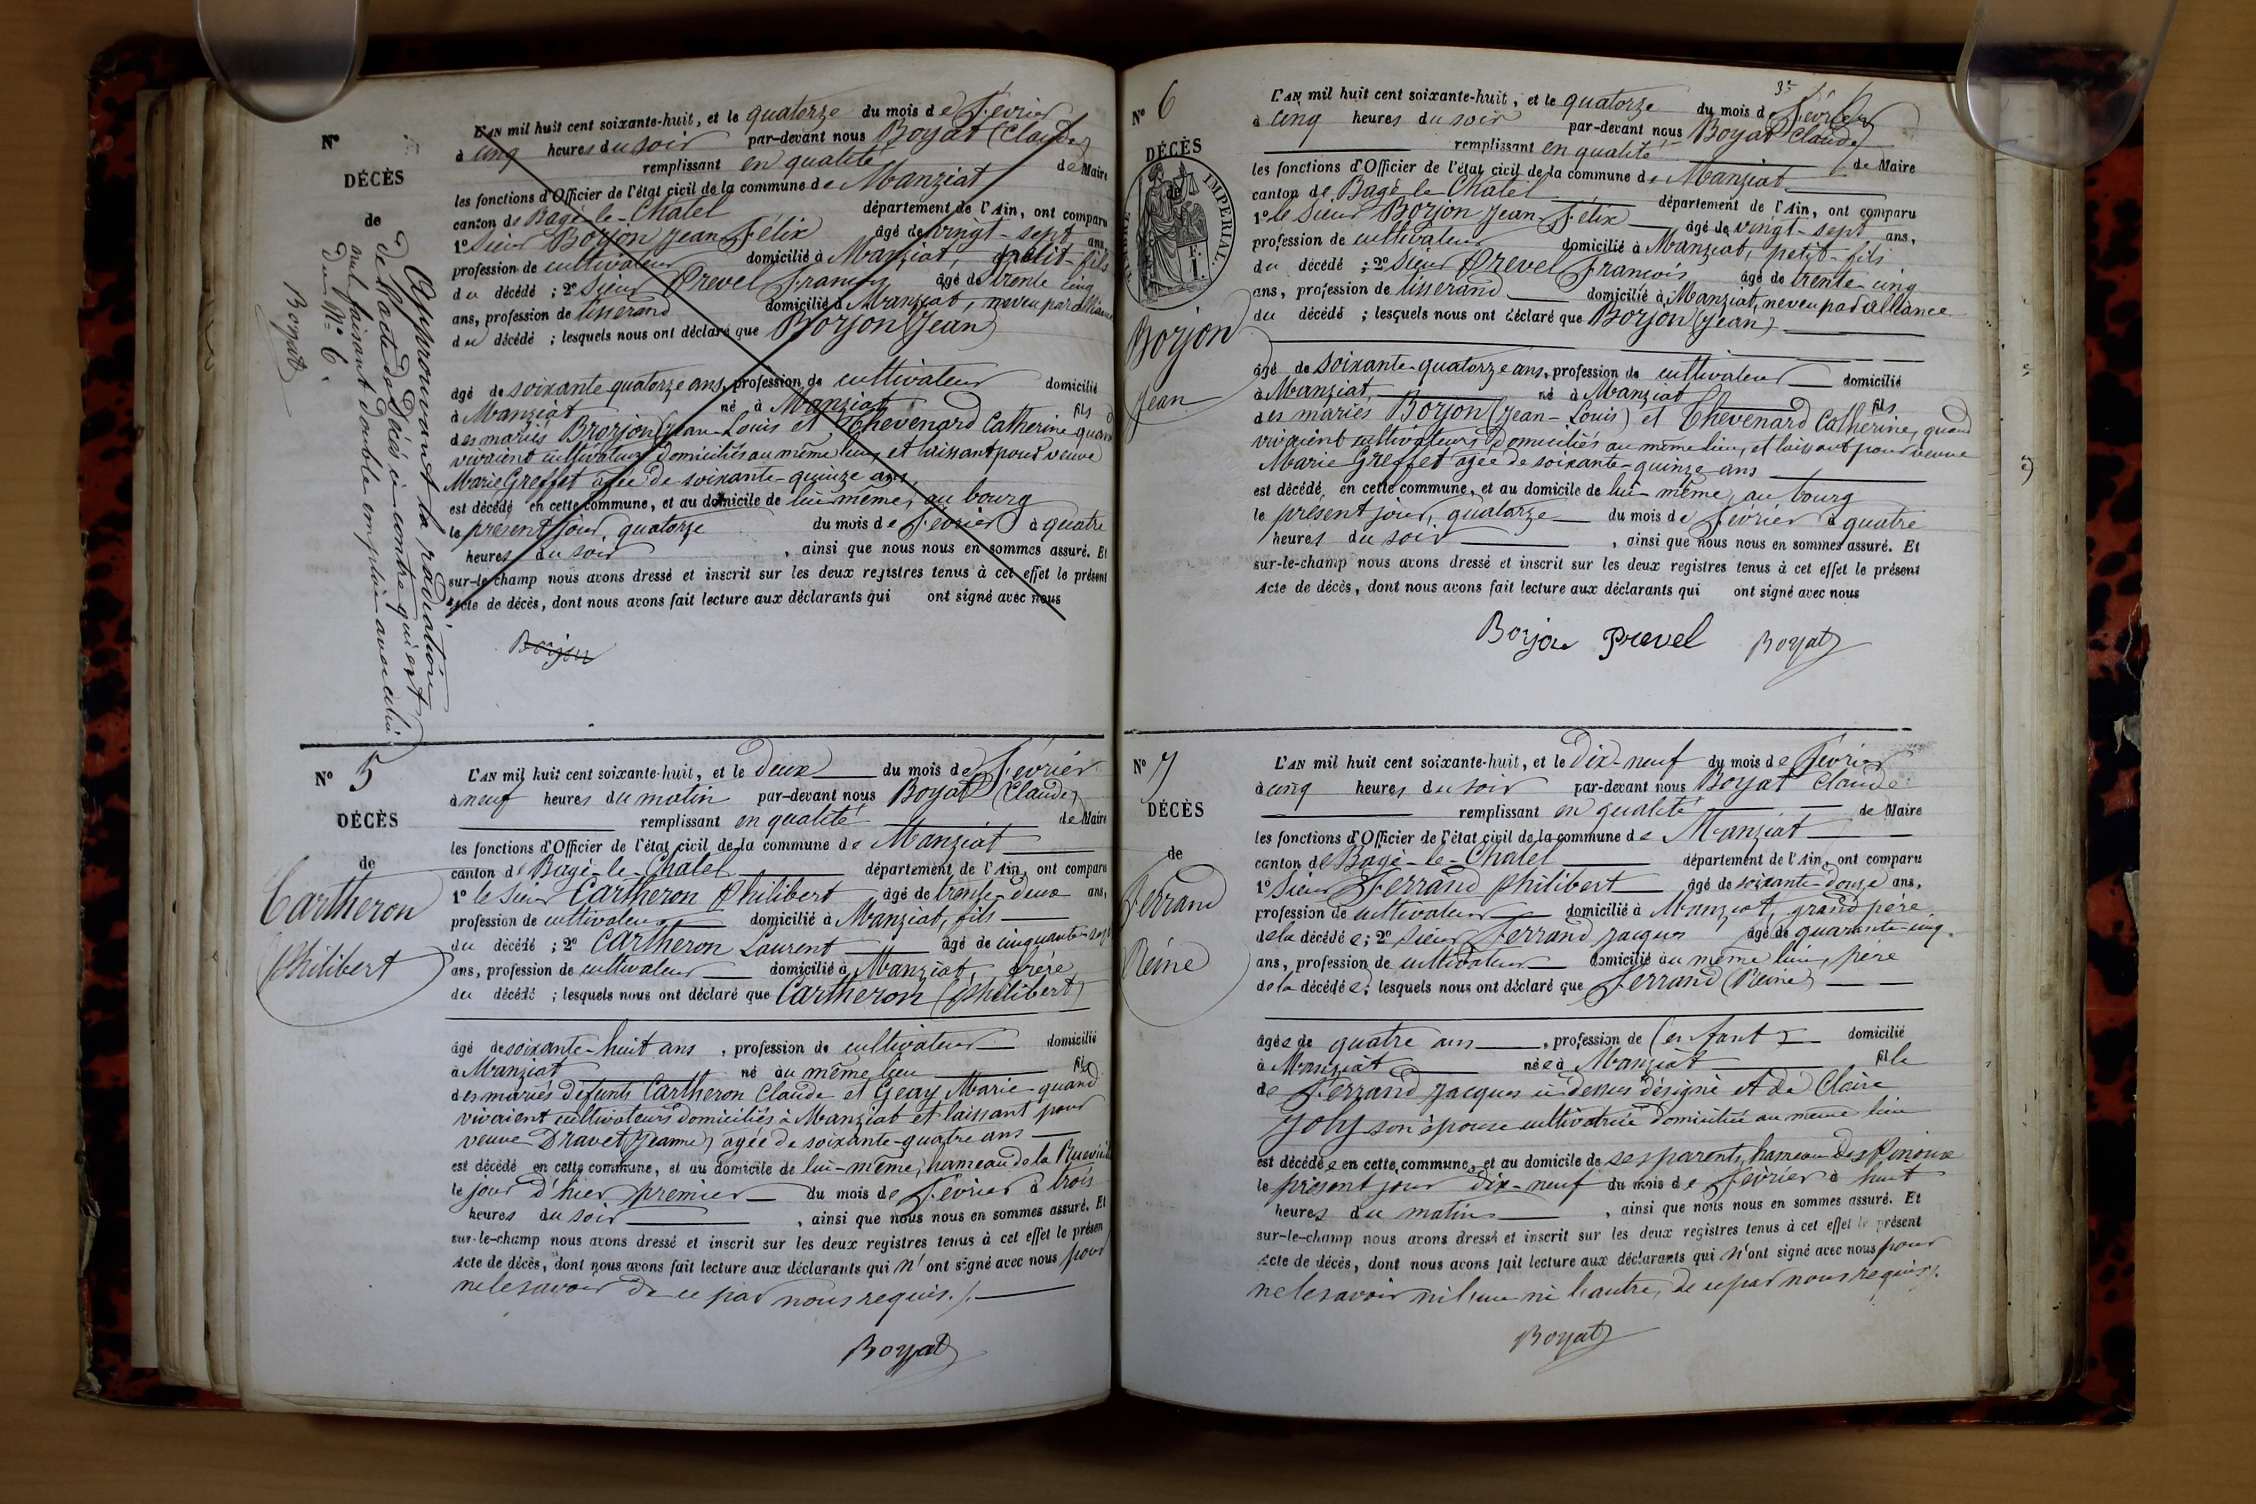 Nº
DÉCÈS
de
Approuvant la radiation
de l'acte de Décès ci-contre qui est
nul faisant double emploi avec celui
du Nº 6.
Boyat
L'AN mil huit cent soixante-huit, et le quatorze du mois de Février
à cinq heures du soir par-devant nous Boyat (Claude)
remplissant en qualité de Maire
les fonctions d'Officier de l'état civil de la commune de Manziat
canton de Bagé-le-Chatel département de l'Ain, ont comparu
1º Sieur Borjon Jean Félix âgé de vingt-sept ans,
profession de cultivateur domicilié à Manziat, petit-fils
du décédé ; 2º Sieur Prevel François âgé de trente cinq
ans, profession de tisserand domicilié à Manziat, neveu par alliance
du décédé ; lesquels nous ont déclaré que Borjon (Jean)
âgé de soixante quatorze ans, profession de cultivateur domicilié
à Manziat né à Manziat fils
des mariés Brorjon (Jean-Louis et Thevenard Catherine quand
vivaient cultivateurs domiciliés au même lieu et laissant pour veuve
Marie Greffet agée de soixante-quinze ans,
est décédé en cette commune, et au domicile de lui même, au bourg
le présent jour, quatorze du mois de Février à quatre
heures du soir , ainsi que nous nous en sommes assuré. Et
sur-le-champ nous avons dressé et inscrit sur les deux registres tenus à cet effet le présent
Acte de décès, dont nous avons fait lecture aux déclarants qui ont signé avec nous
Borjon
Nº 5
DÉCÈS
de
Cartheron
Philibert
L'AN mil huit cent soixante-huit, et le deux du mois de Février
à neuf heures du matin par-devant nous Boyat (Claude)
remplissant en qualité de Maire
les fonctions d'Officier de l'état civil de la commune de Manziat
canton de Bagé-le-Chatel département de l'Ain, ont comparu
1º le Sieur Cartheron Philibert âgé de trente-deux ans,
profession de cultivateur domicilié à Manziat, fils
du décédé ; 2º Cartheron Laurent âgé de cinquante-sept
ans, profession de cultivateur domicilié à Manziat, frère
du décédé ; lesquels nous ont déclaré que Cartheron (Philibert)
âgé de soixante-huit ans , profession de cultivateur domicilié
à Manziat né au même lieu fils
des mariés défunts Cartheron Claude et Geay Marie quand
vivaient cultivateurs domiciliés à Manziat et laissant pour
veuve Dravet (Jeanne) agée de soixante-quatre ans
est décédé en cette commune, et au domicile de lui-même, hameau de la
le jour d'hier premier du mois de Février à trois
heures du soir , ainsi que nous nous en sommes assuré. Et
sur-le-champ nous avons dressé et inscrit sur les deux registres tenus à cet effet le présen
Acte de décès, dont nous avons fait lecture aux déclarants qui n'ont signé avec nous pour
ne le savoir de ce par nous requis ./.
Boyat
3
Nº 6
DÉCÈS
de
TIMBRE IMPÉRIAL.
Borjon
Jean
L'AN mil huit cent soixante-huit, et le quatorze du mois de Février
à cinq heures du soir par-devant nous Boyat Claude
remplissant en qualité de Maire
les fonctions d'Officier de l'état civil de la commune de Manziat
canton de Bagé-le-Chatel département de l'Ain, ont comparu
1º le Sieur Borjon Jean Félix âgé de vingt-sept ans,
profession de cultivateur domicilié à Manziat, petit-fils
du décédé ; 2º Sieur Prevel François âgé de trente-cinq
ans, profession de tisserand domicilié à Manziat, neveu par alliance
du décédé ; lesquels nous ont déclaré que Borjon (Jean)
âgé de soixante-quatorze ans, profession de cultivateur domicilié
à Manziat, né à Manziat fils
des mariés Borjon (Jean-Louis) et Thevenard Catherine, quand
vivaient cultivateurs domiciliés au même lieu, et laissant pour veuve
Marie Greffet agée de soixante-quinze ans
est décédé en cette commune, et au domicile de lui-même, au bourg
le présent jour, quatorze du mois de Février à quatre
heures du soir , ainsi que nous nous en sommes assuré. Et
sur-le-champ nous avons dressé et inscrit sur les deux registres tenus à cet effet le présent
Acte de décès, dont nous avons fait lecture aux déclarants qui ont signé avec nous
Borjon Prevel Boyat
Nº 7
DÉCÈS
de
Ferrand
Réine
L'AN mil huit cent soixante-huit, et le Dix-neuf du mois de Février
à cinq heures du soir par-devant nous Boyat Claude
remplissant en qualité de Maire
les fonctions d'Officier de l'état civil de la commune de Manziat
canton de Bagé-le-Chatel département de l'Ain, ont comparu
1º Sieur Ferrand Philibert âgé de soixante-douze ans,
profession de cultivateur domicilié à Manziat, grand père
de la décédée ; 2º Sieur Ferrand Jacques âgé de quarante-cinq
ans, profession de cultivateur domicilié au même lieu, père
de la décédée ; lesquels nous ont déclaré que Ferrand (Reine)
âgée de quatre ans , profession de (enfant) domicilié
à Manziat née à Manziat fille
de Ferrand Jacques ci dessus désigné et de Claire
Joly son épouse cultivatrice domiciliée au même lieu
est décédée en cette commune, et au domicile de ses parents, hameau des Pinoux
le présent jour dix-neuf du mois de Février à huit
heures du matin , ainsi que nous nous en sommes assuré. Et
sur-le-champ nous avons dressé et inscrit sur les deux registres tenus à cet effet le présent
Acte de décès, dont nous avons fait lecture aux déclarants qui n'ont signé avec nous pour
ne le savoir ni l'une ni l'autre, de ce par nous requis ./.
Boyat